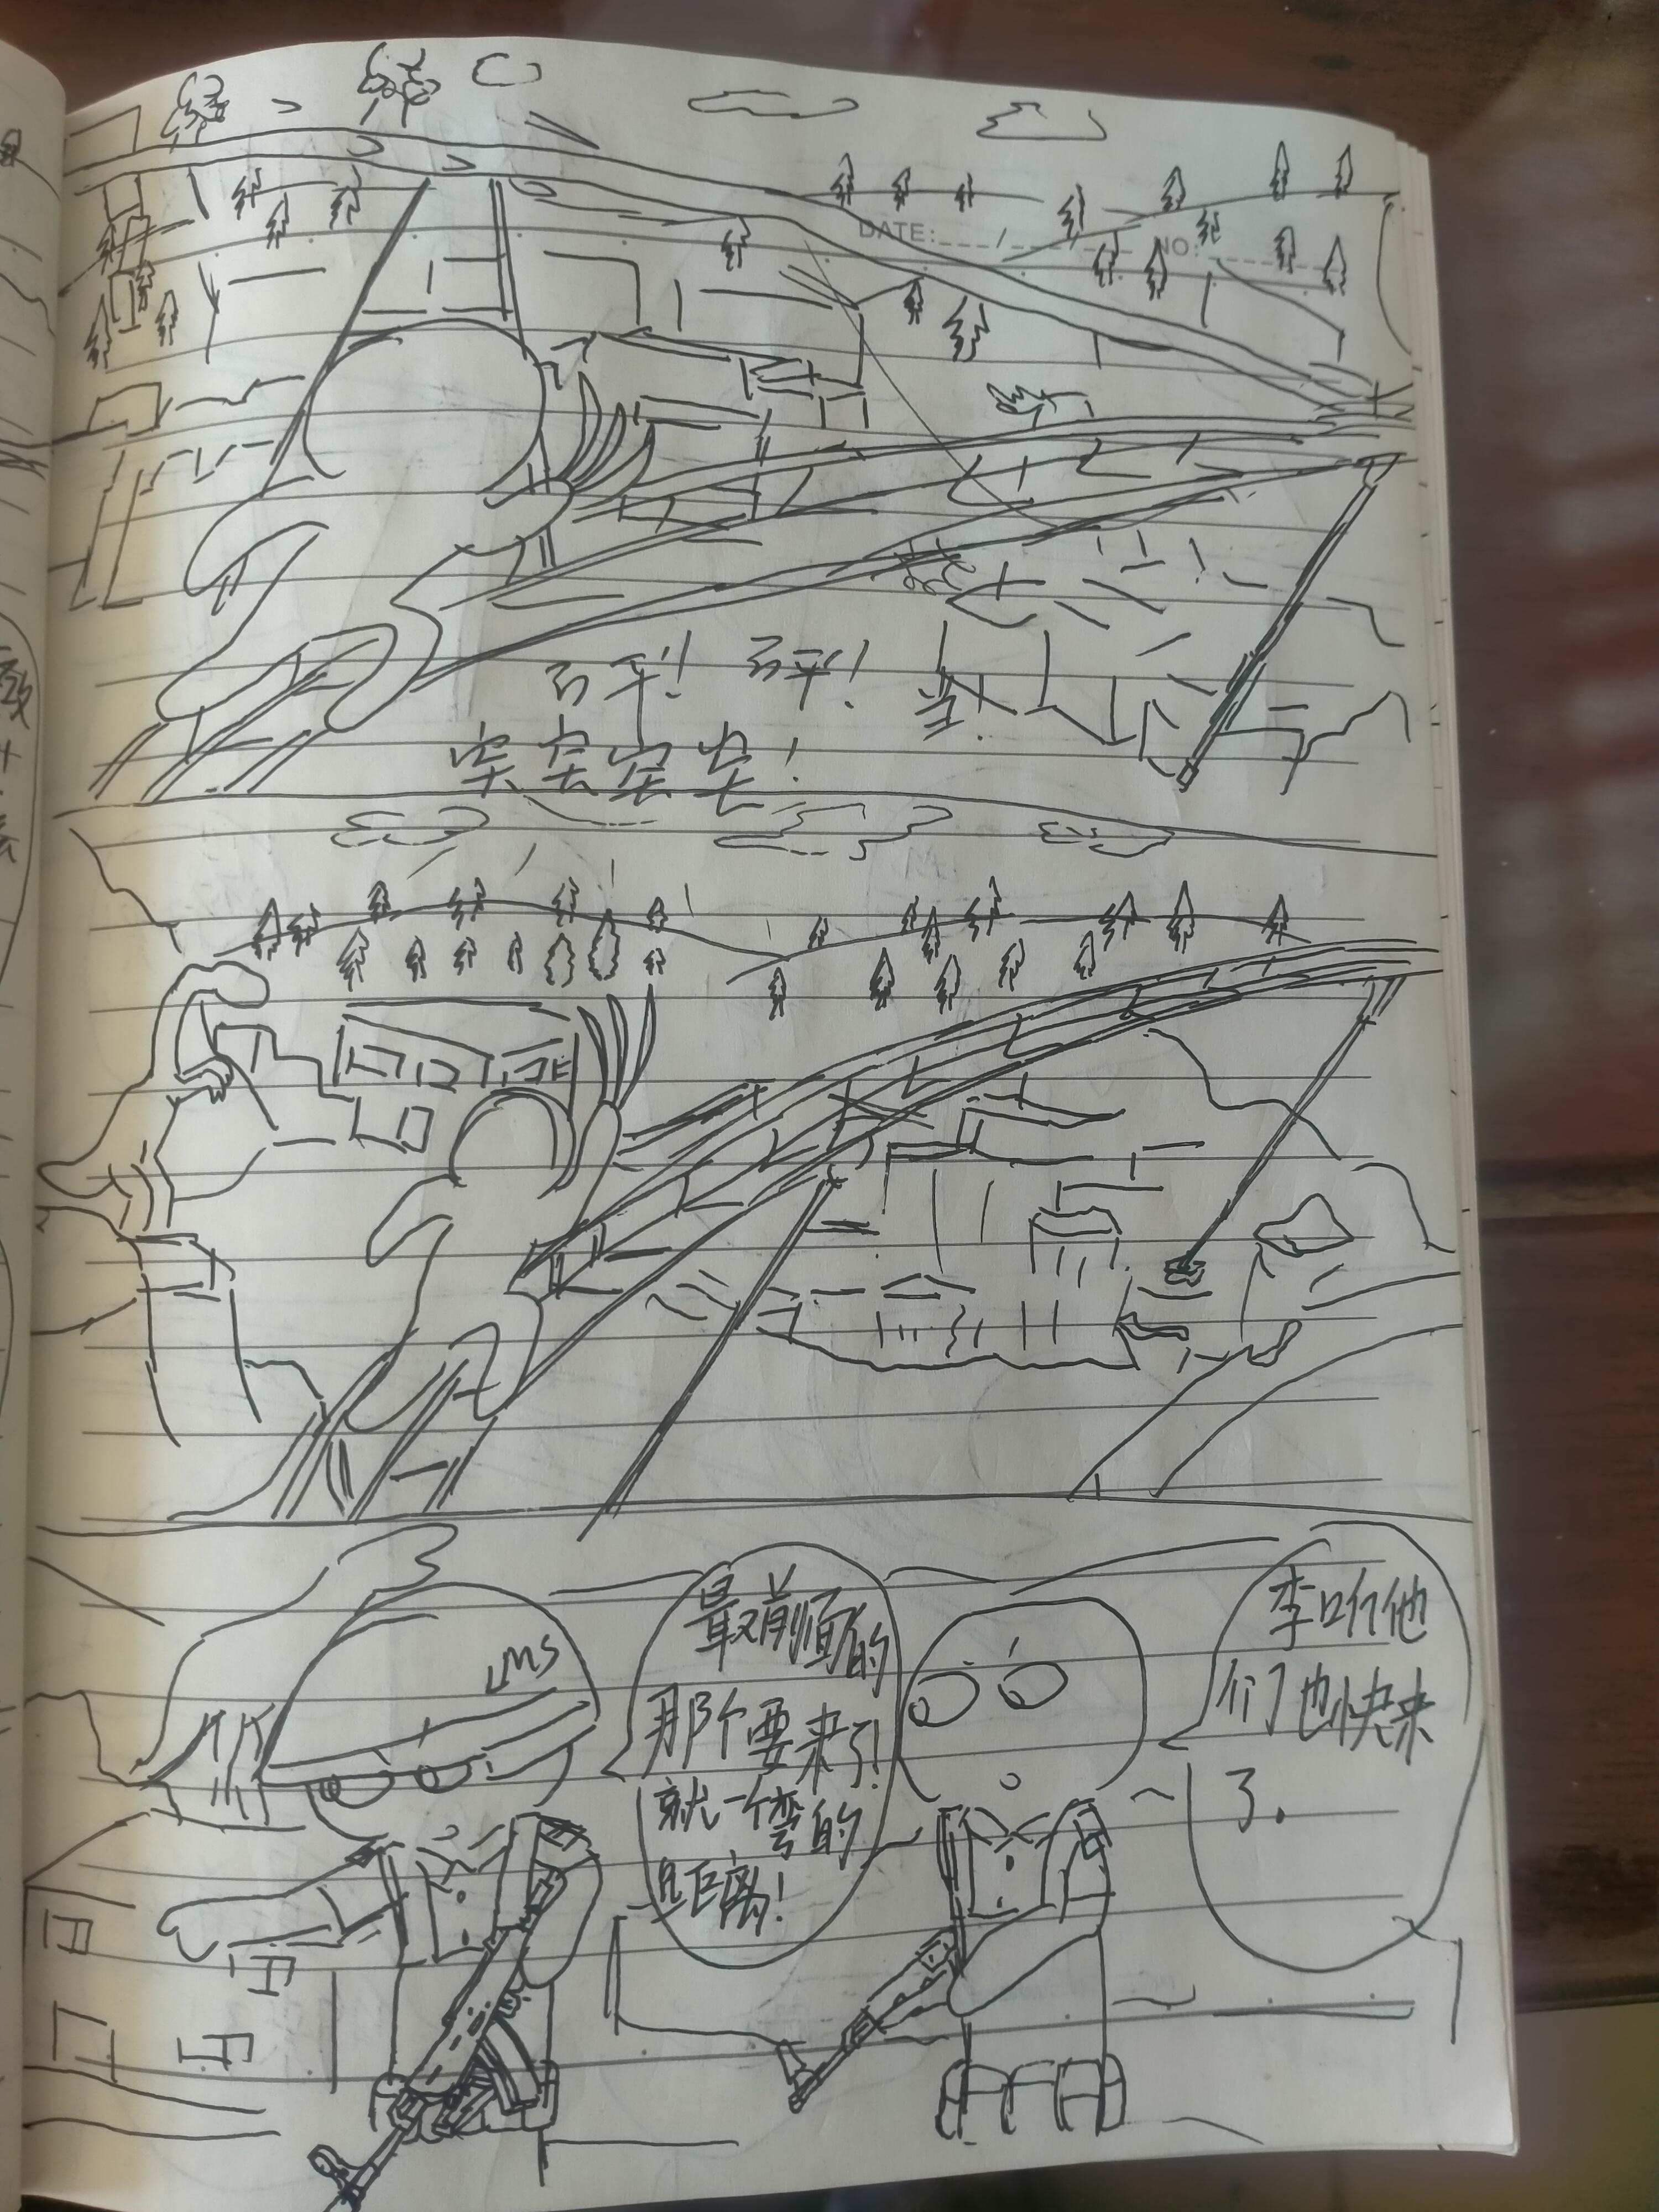 DATE: / / NO:
砰！ 砰！
突突突突！
LMS
最前面的
那个要来了！
就一个弯的
距离！
李叫他
们也快来
了.